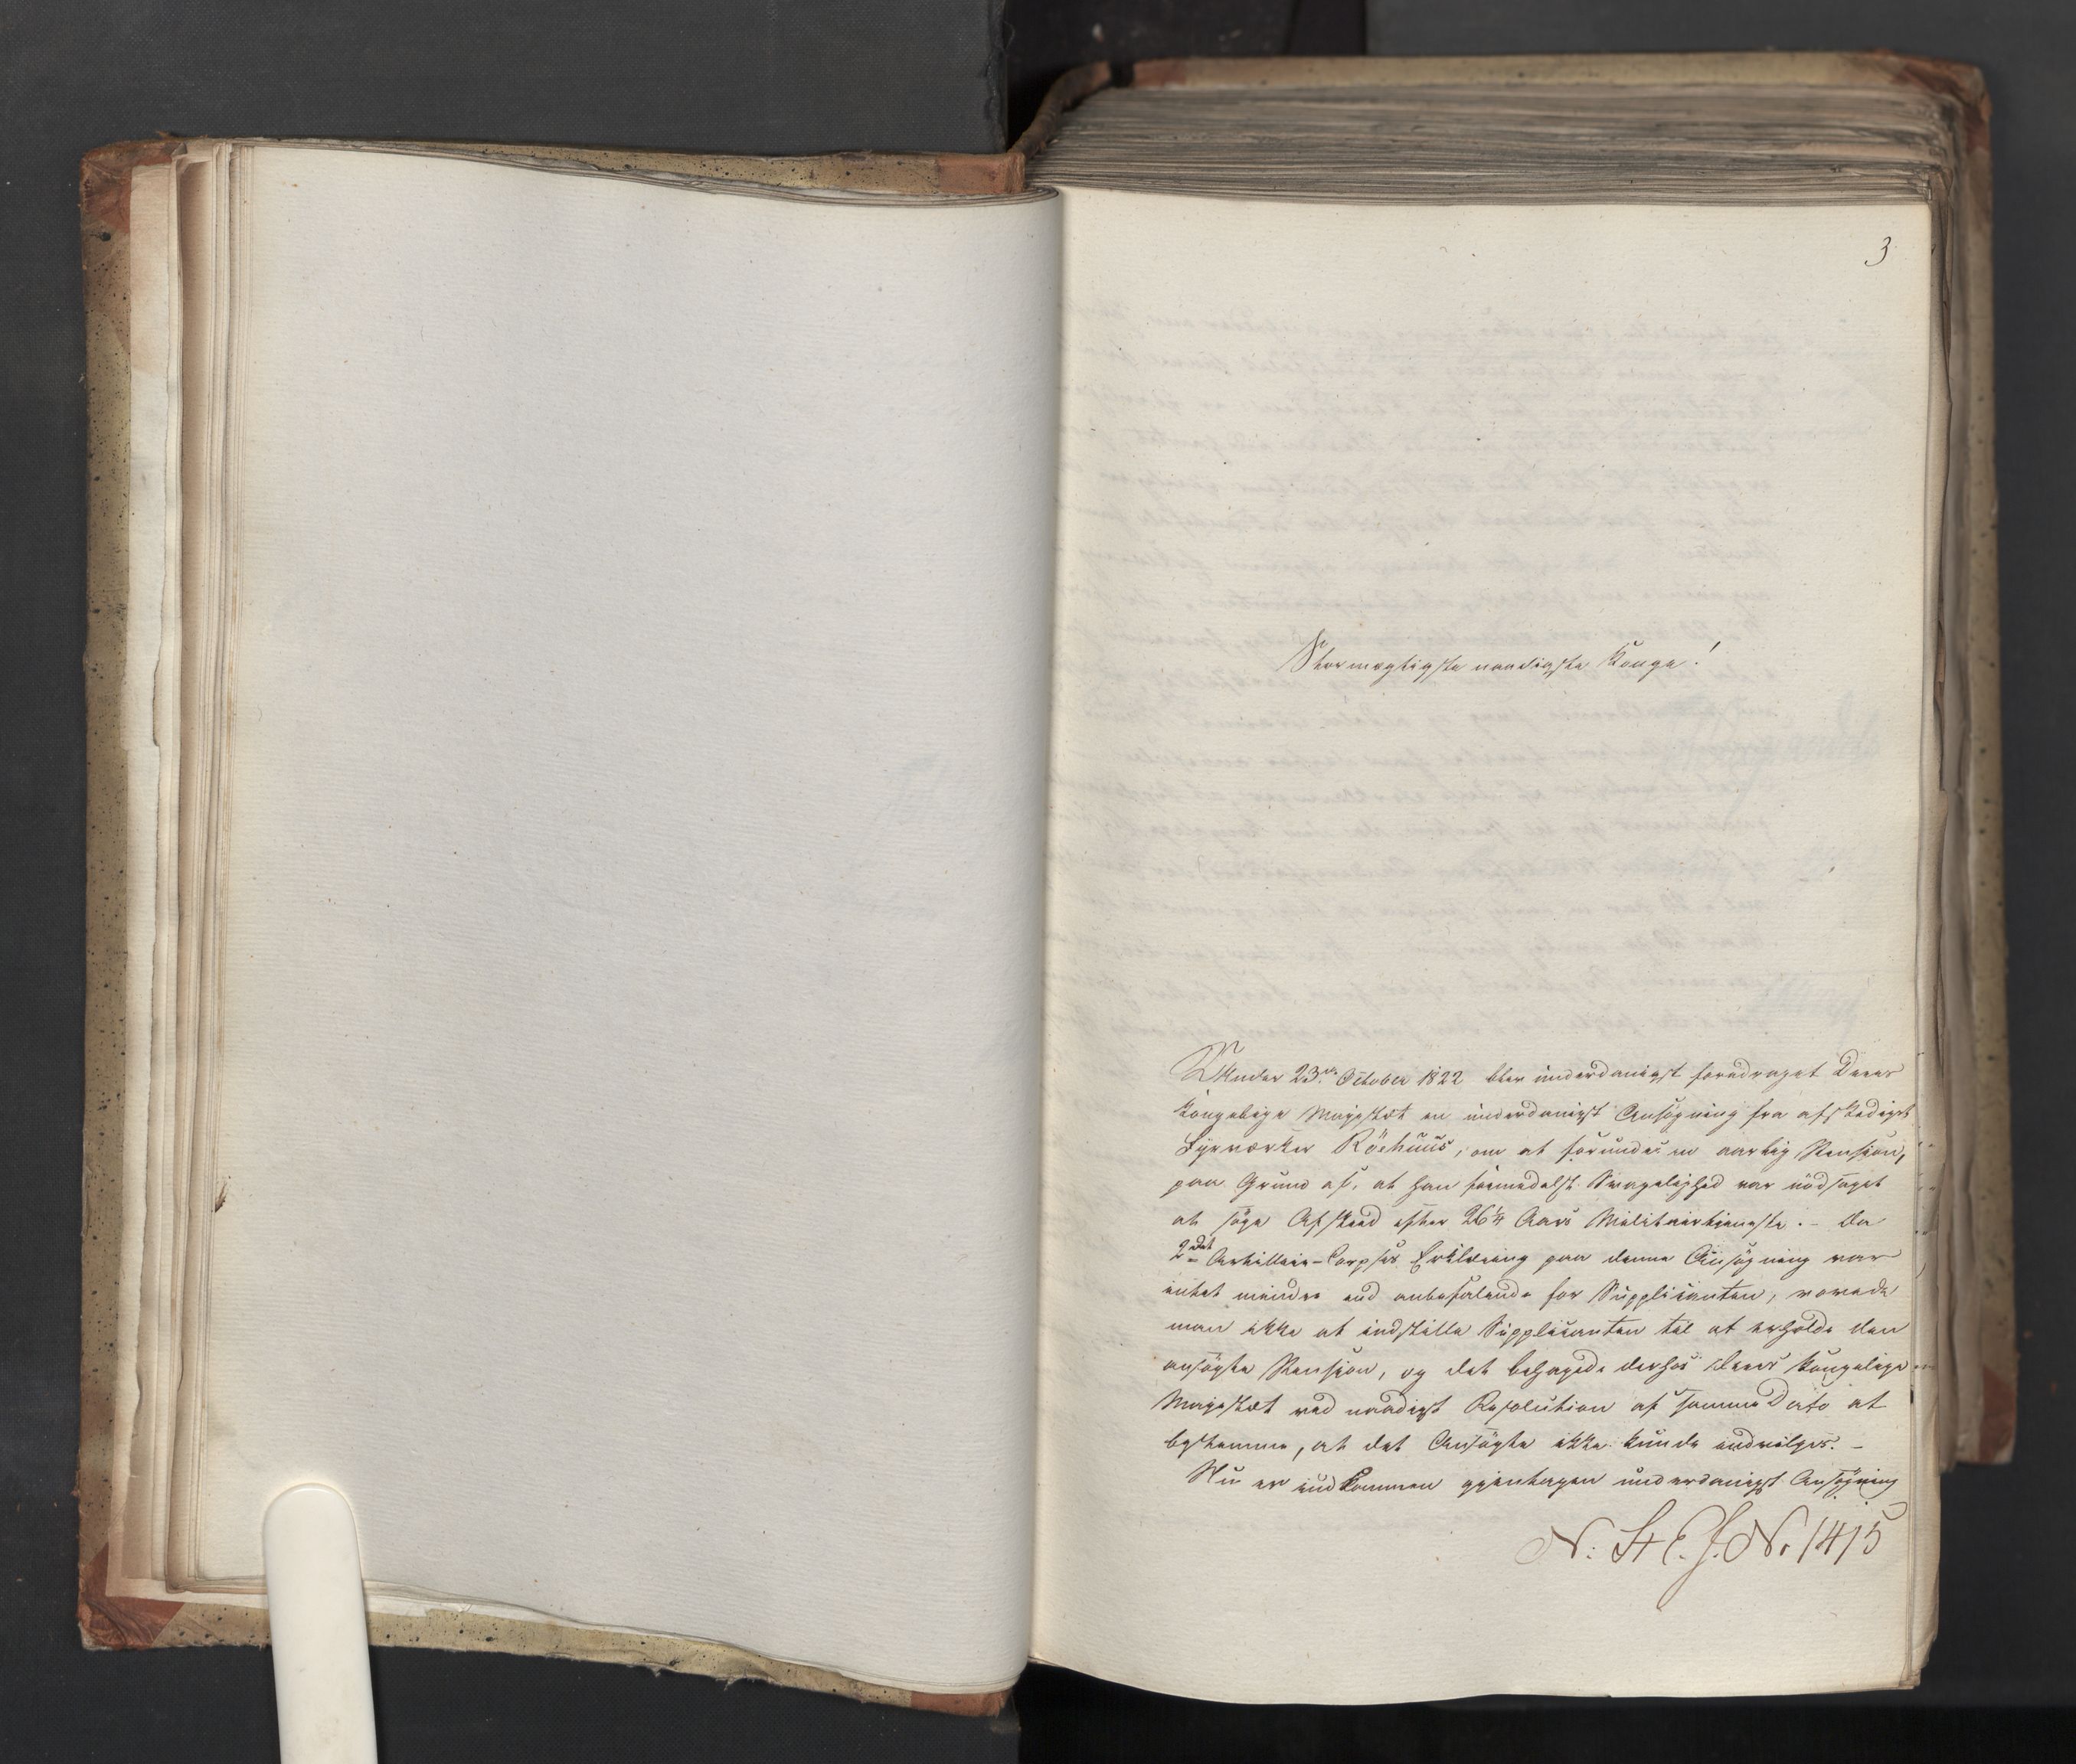 3
Stormægtigste naadigste Konge!
Under 23de October 1822 blev underdanigst foredraget Deres
Kongelige Majestæt en underdanigst Ansøgning fra afskediget
Fyrværker Röehuus, om at forundes en aarlig Pension,
paa Grund af, at han formedelst Svagelighed var nödsaget
at söge Afskeed efter 26¼ Aars Militairtieneste. – Da
2det Artillerie-Corpses Erklæring paa denne Ansögning var
intet mindre end anbefalende for Supplicanten, vovede
man ikke at indstille Supplicanten til at erholde den
ansögte Pension, og det behagede derhos Deres Kongelige
Majestæt ved naadigst Resolution af samme Dato at
bestemme, at det Ansögte ikke kunde indvilges. –
Nu er indkommen gjentagen underdanigst Ansøgning
N: St E. J. No 1415